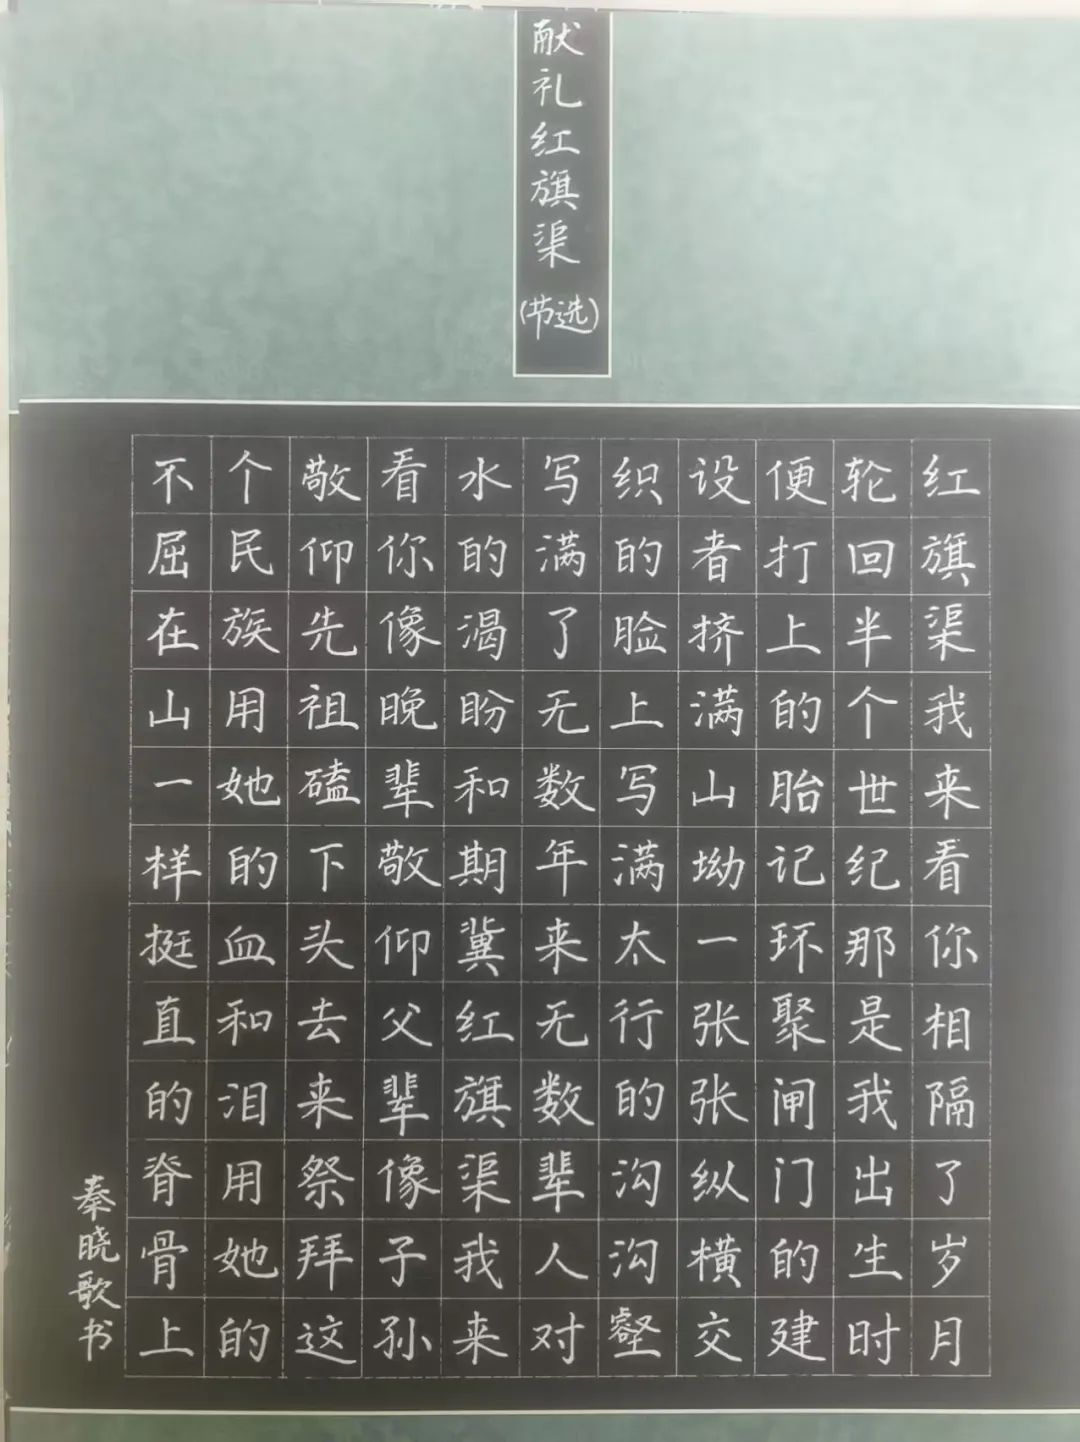 献礼红旗渠(节选)
红旗渠我来看你相隔了岁月
轮回半个世纪那是我出生时
便打上的胎记环聚闸门的建
设者挤满山坳一张张纵横交
织的脸上写满太行的沟沟壑
写满了无数年来无数辈人对
水的渴盼和期冀红旗渠我来
看你像晚辈敬仰父辈像子孙
敬仰先祖磕下头去来祭拜这
个民族用她的血和泪用她的
不屈在山一样挺直的脊骨上
秦晓歌书